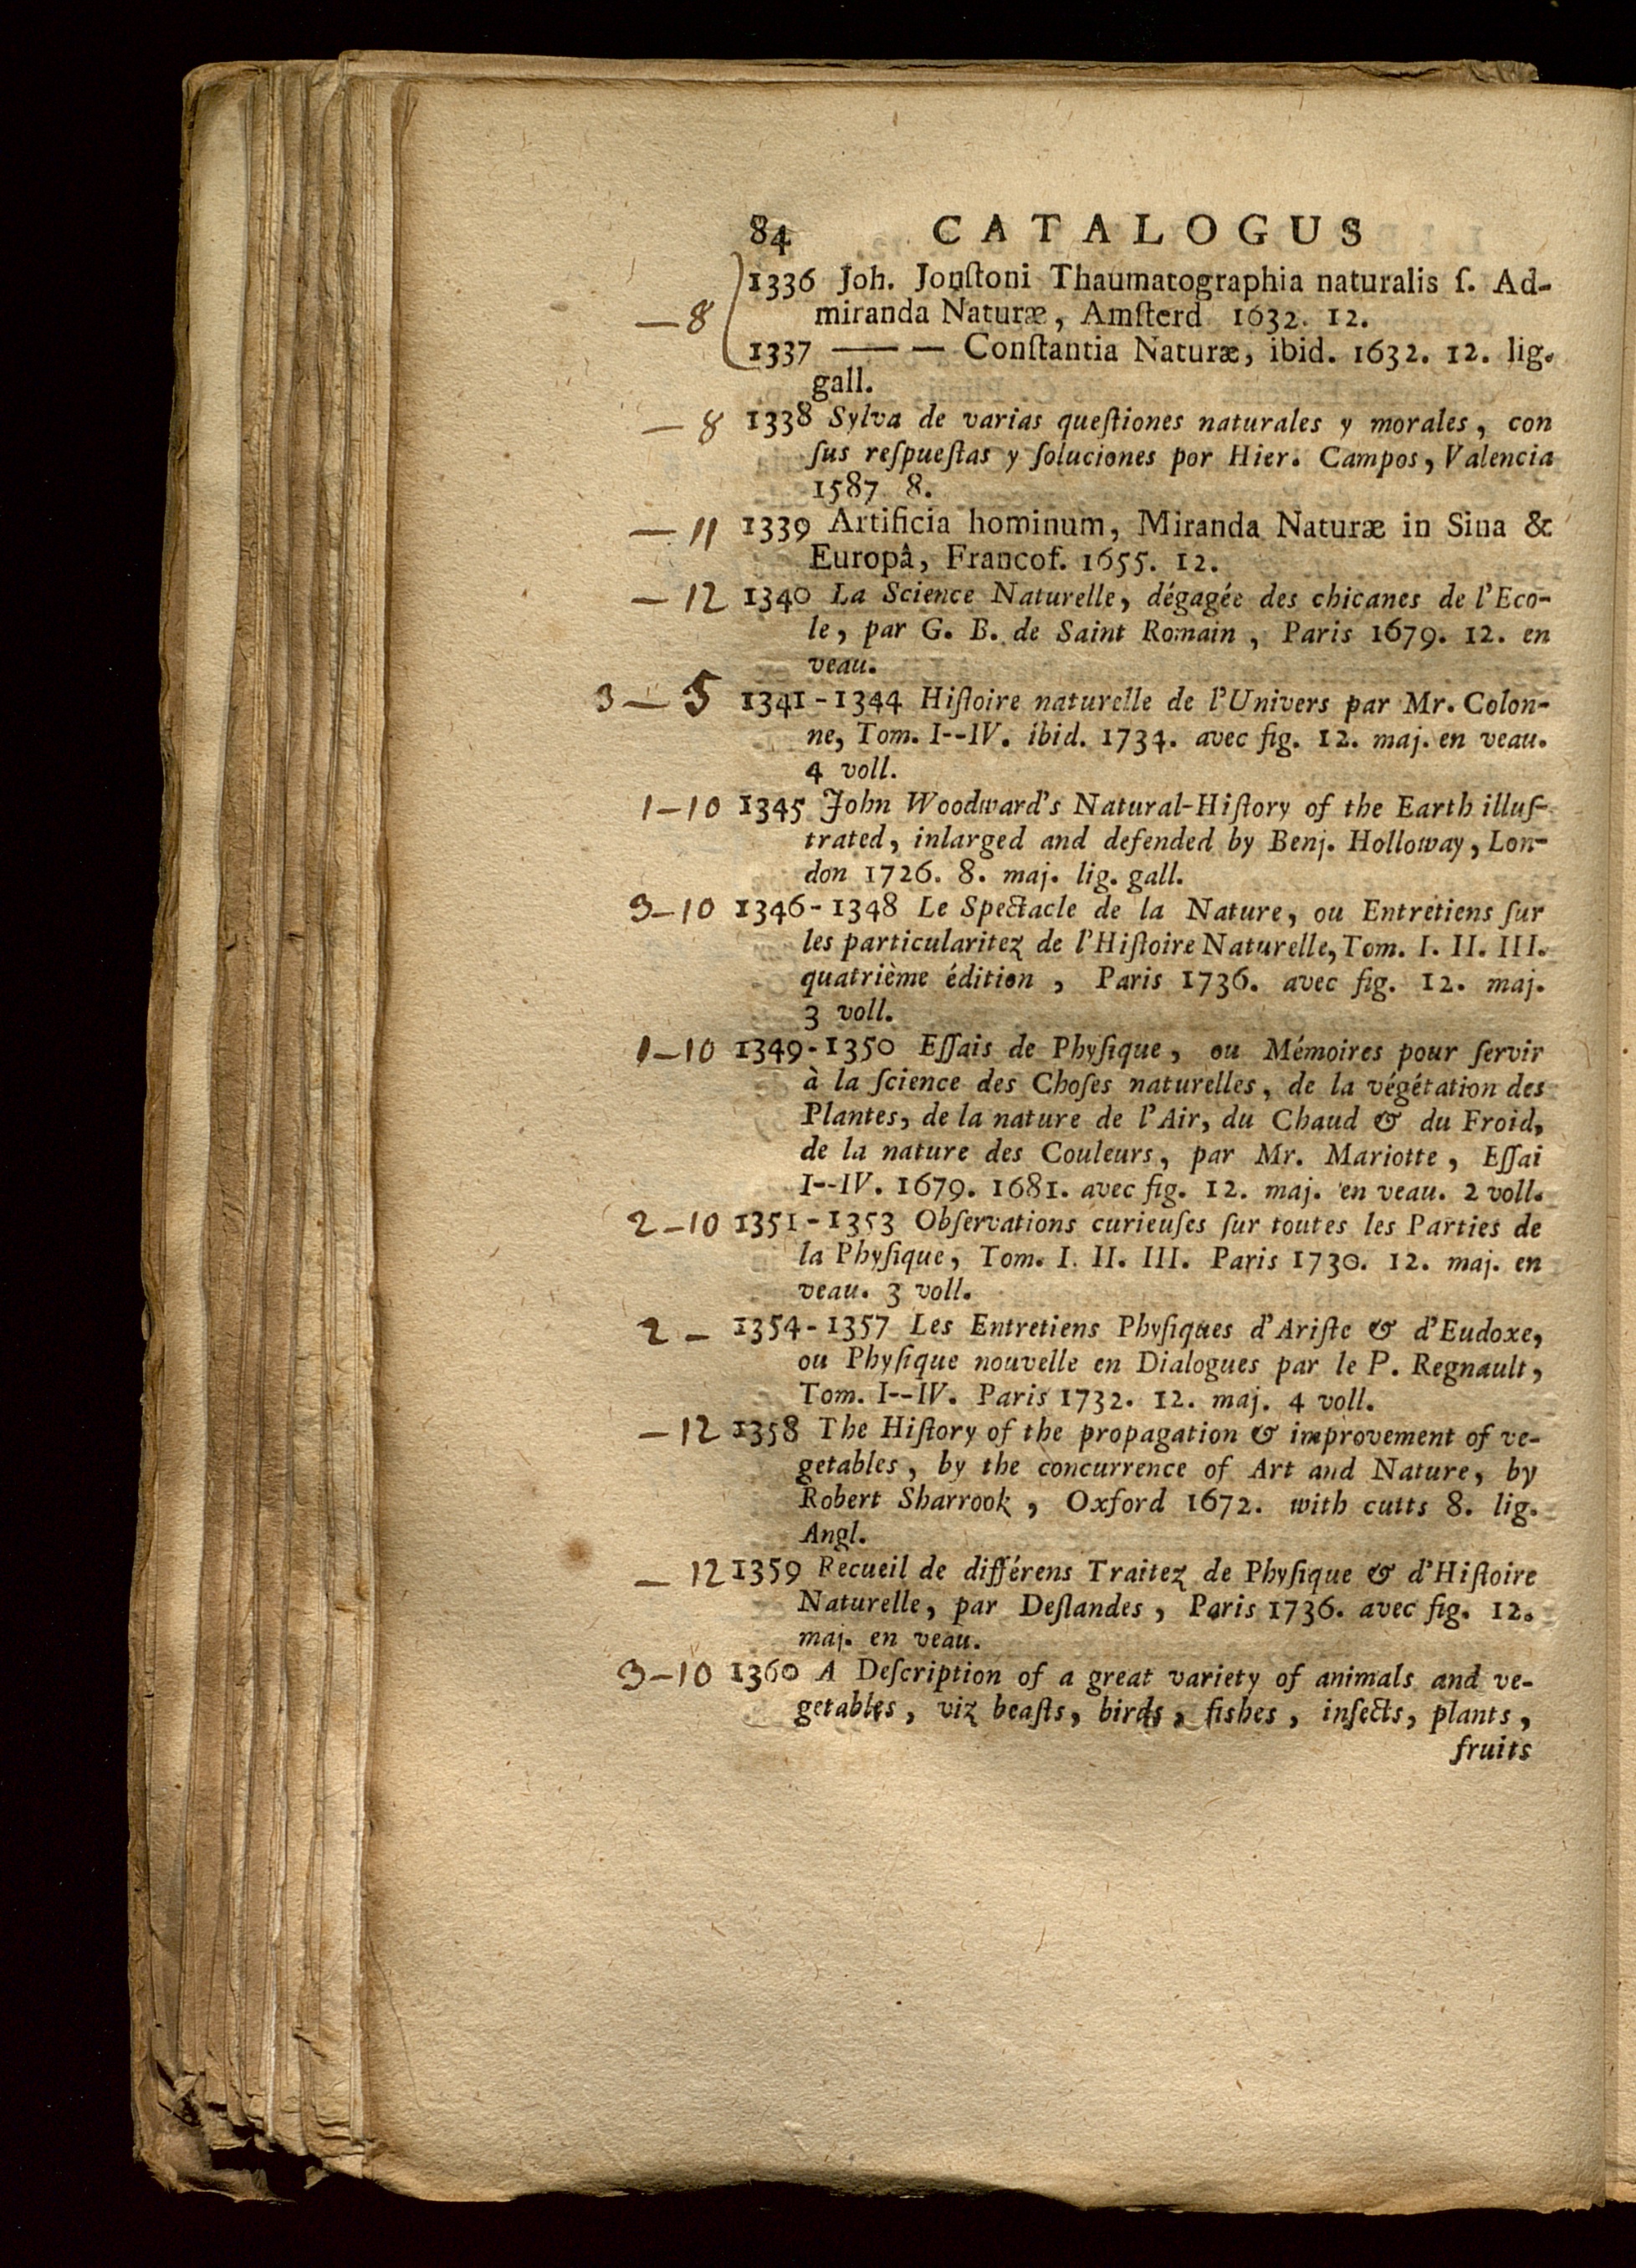 84 CATALOGUS
1336 Joh. Jonſtoni Thaumatographia naturalis ſ. Ad-
— 8 miranda Naturæ, Amſterd 1632. 12.
1337 —— — Conſtantia Naturæ, ibid. 1632. 12. lig.
gall.
— 8 1338 Sylva de varias queſtiones naturales y morales, con
ſus reſpueſtas y ſoluciones por Hier. Campos, Valencia
1587 8.
— 11 1339 Artificia hominum, Miranda Naturæ in Sina &
Europâ, Francof. 1655. 12.
— 12 1340 La Science Naturelle, dégagée des chicanes de l'Eco-
le, par G. B. de Saint Romain, Paris 1679. 12. en
veau.
3 — 5 1341-1344 Hiſtoire naturelle de l'Univers par Mr. Colon-
ne, Tom. I--IV. ibid. 1734. avec fig. 12. maj. en veau.
4 voll.
1—10 1345 John Woodward's Natural-Hiſtory of the Earth illuſ-
trated, inlarged and defended by Benj. Holloway, Lon-
don 1726. 8. maj. lig. gall.
3—10 1346-1348 Le Spectacle de la Nature, ou Entretiens ſur
les particularitez de l'Hiſtoire Naturelle, Tom. I. II. III.
quatrième édition, Paris 1736. avec fig. 12. maj.
3 voll.
1—10 1349-1350 Eſſais de Phyſique, ou Mémoires pour ſervir
à la ſcience des Choſes naturelles, de la végétation des
Plantes, de la nature de l'Air, du Chaud & du Froid,
de la nature des Couleurs, par Mr. Mariotte, Eſſai
I--IV. 1679. 1681. avec fig. 12. maj. en veau. 2 voll.
2—10 1351-1353 Obſervations curieuſes ſur toutes les Parties de
la Phyſique, Tom. I. II. III. Paris 1730. 12. maj. en
veau. 3 voll.
2 — 1354-1357 Les Entretiens Phyſiques d'Ariſte & d'Eudoxe,
ou Phyſique nouvelle en Dialogues par le P. Regnault,
Tom. I--IV. Paris 1732. 12. maj. 4 voll.
— 12 1358 The Hiſtory of the propagation & improvement of ve-
getables, by the concurrence of Art and Nature, by
Robert Sharrook, Oxford 1672. with cutts 8. lig.
Angl.
— 12 1359 Recueil de différens Traitez de Phyſique & d'Hiſtoire
Naturelle, par Deſlandes, Paris 1736. avec fig. 12.
maj. en veau.
3—10 1360 A Deſcription of a great variety of animals and ve-
getables, viz beaſts, birds, fishes, inſects, plants,
fruits